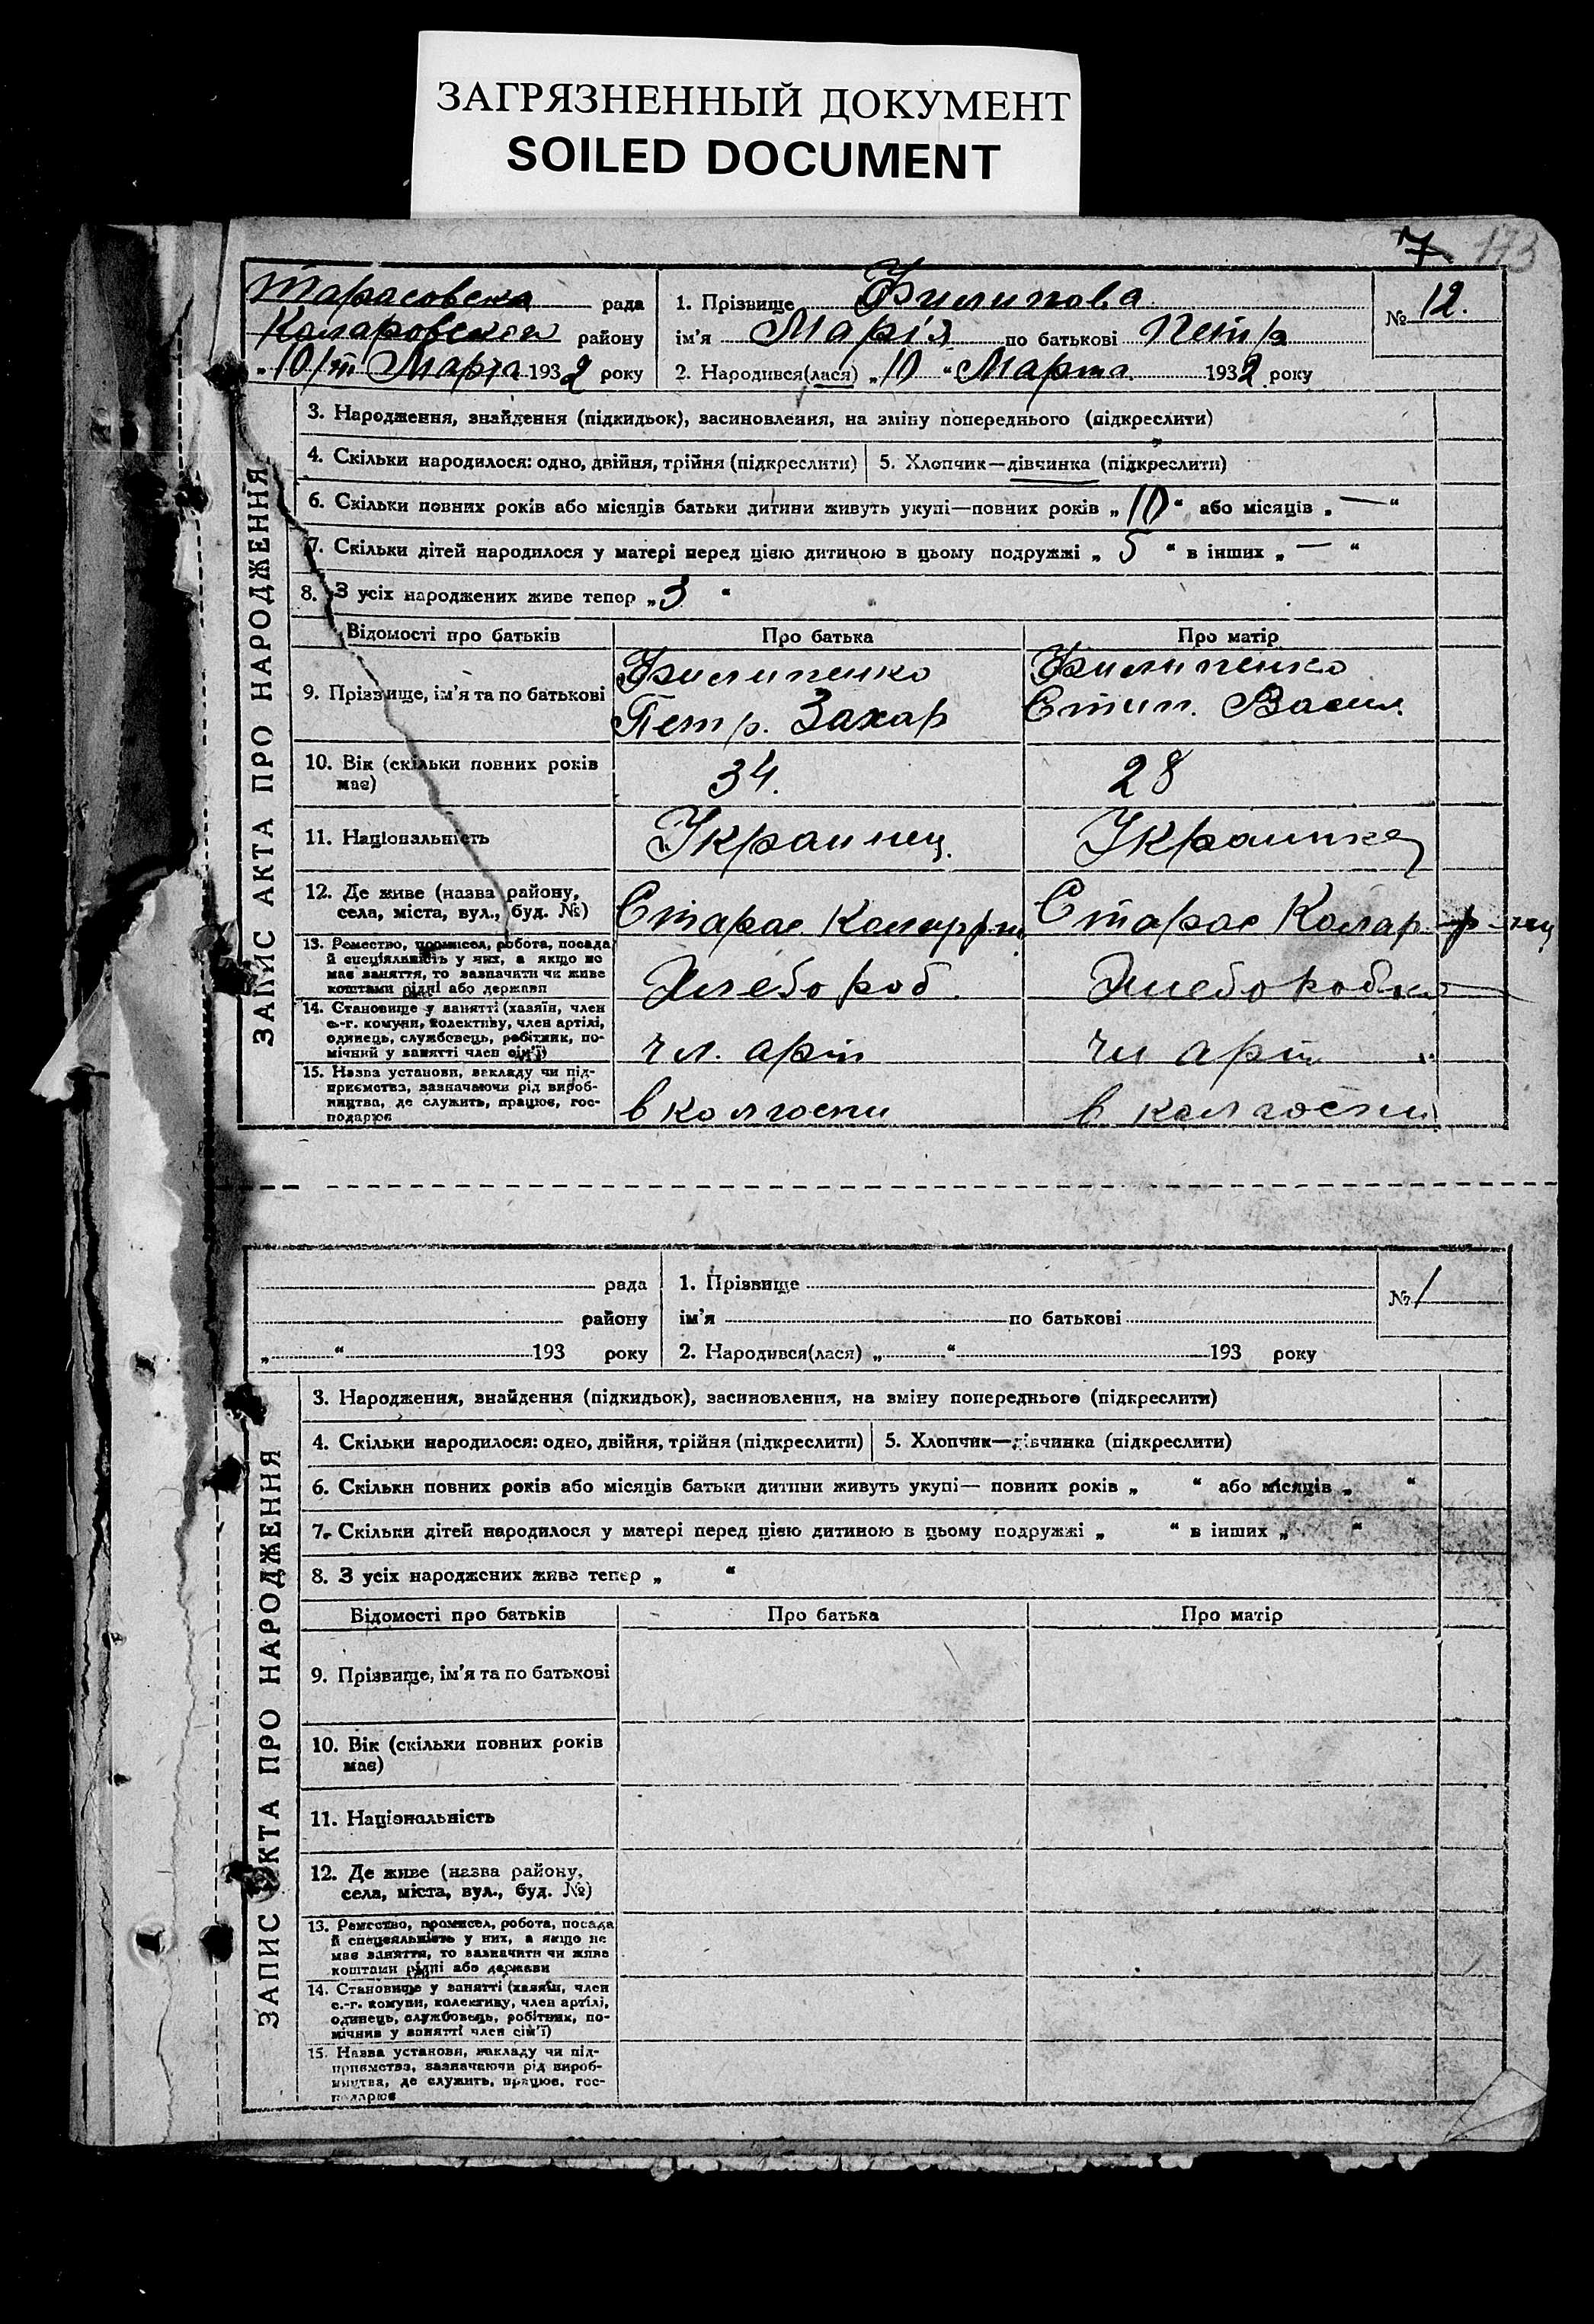 ЗАГРЯЗНЕННЫЙ ДОКУМЕНТ
SOILED DOCUMENT
7 173
Тарасовска рада
Коларовского району
„10/III Марта 1932 року
1. Прізвище Филипова
ім'я Марія по батькові Петр
2. Народився(лася) „10“ Марта 1932 року
№ 12.
ЗАПИС АКТА ПРО НАРОДЖЕННЯ
3. Народження, знайдення (підкидьок), засиновлення, на зміну попереднього (підкреслити)
4. Скільки народилося: одно, двійня, трійня (підкреслити) 5. Хлопчик—дівчинка (підкреслити)
6. Скільки повних років або місяців батьки дитини живуть укупі—повних років „10“ або місяців „—“
7. Скільки дітей народилося у матері перед цією дитиною в цьому подружжі „5“ в інших „—“
8. З усіх народжених живе тепер „3“
Відомості про батьків Про батька Про матір
9. Прізвище, ім'я та по батькові
Филипенко
Петр. Захар
Филипенко
Васил.
10. Вік (скільки повних років
має)
34.
28
11. Національність
Украинец.
Украинка
12. Де живе (назва району,
села, міста, вул., буд. №)
Старас Колар
Старас Колар р-
13. Ремество, промисел, робота, посада
й спеціяльність у них, а якщо не
має заняття, то зазначити чи живе
коштами рідні або держави
Хлебороб.
Хлеборобка
14. Становище у занятті (хазяїн, член
с.-г. комуни, колективу, член артілі,
одинець, службовець, робітник, по-
мічний у занятті член сім'ї)
чл. арт
чл арт
15. Назва установи, закладу чи під-
приємства, зазначаючи рід вироб-
ництва, де служить, працює, гос-
подарює
в колгоспи
в колгоспи
рада
району
„ “ 193 року
1. Прізвище
ім'я по батькові
2. Народився(лася) „ “ 193 року
№ 1
ЗАПИС АКТА ПРО НАРОДЖЕННЯ
3. Народження, знайдення (підкидьок), засиновлення, на зміну попереднього (підкреслити)
4. Скільки народилося: одно, двійня, трійня (підкреслити) 5. Хлопчик—дівчинка (підкреслити)
6. Скільки повних років або місяців батьки дитини живуть укупі— повних років „ “ або місяців „ “
7. Скільки дітей народилося у матері перед цією дитиною в цьому подружжі „ “ в інших „ “
8. З усіх народжених живе тепер „ “
Відомості про батьків Про батька Про матір
9. Прізвище, ім'я та по батькові
10. Вік (скільки повних років
має)
11. Національність
12. Де живе (назва району,
села, міста, вул., буд. №)
13. Ремество, промисел, робота, посада
й спеціяльність у них, а якщо не
має заняття, то зазначити чи живе
коштами рідні або держави
14. Становище у занятті (хазяїн, член
с.-г. комуни, колективу, член артілі,
одинець, службовець, робітник, по-
мічник у занятті член сім'ї)
15. Назва установи, закладу чи під-
приємства, зазначаючи рід вироб-
ництва, де служить, працює, гос-
подарює